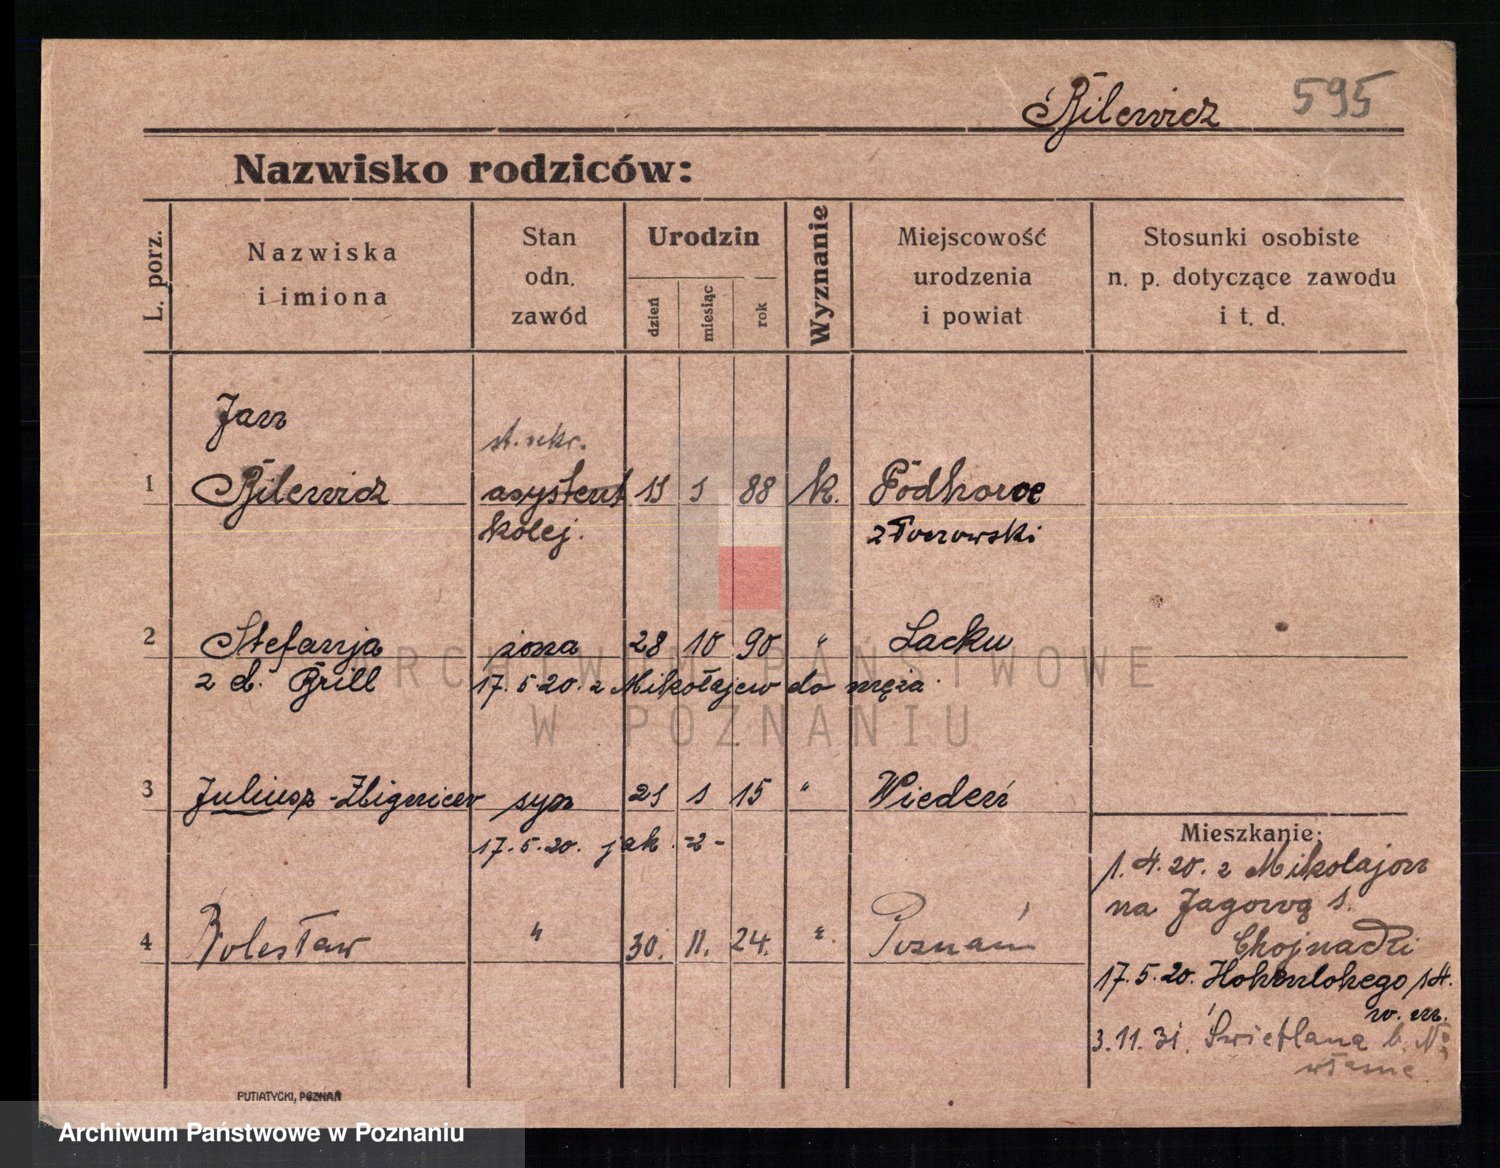 Bilewicz 595
Nazwisko rodziców:
L. porz.
Nazwiska
i imiona
Stan
odn.
zawód
Urodzin
dzień
miesiąc
rok
Wyznanie
Miejscowość
urodzenia
i powiat
Stosunki osobiste
n. p. dotyczące zawodu
i t. d.
Jan
st. sekr.
1 Bilewicz asystent 88 k. Podhorce
kolej. złoczowski
2 Stefanja żona 28 10 90 " Lacku
z d. Brill 17.5.20. z Mikołajew do męża
3 Juliusz-Zbigniew syn 15 " Wiedeń
17.5.20. jak -2-
4 Bolesław " 30. 11. 24. " Poznań
Mieszkanie:
1.4.20. z Mikołajow
na Jagową 1.
Chojnacki
17.5.20. Hohenlohego 14.
w. m.
3.11.31. Świetlana b. No
własne
PUTIATYCKI, POZNAŃ
ARCHIWUM PAŃSTWOWE
W POZNANIU
Archiwum Państwowe w Poznaniu